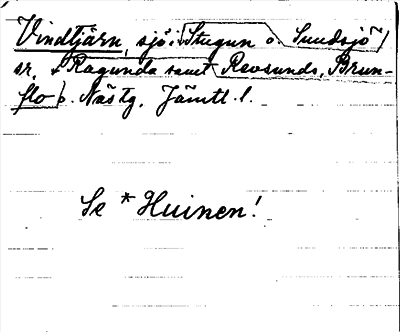 Vindtjärn, sjö i Stugun o. Sundsjö
sr, + Ragunda samt Revsunds, Brun-
flo o. Näs tg, Jämtl. l.
Se * Huinen!